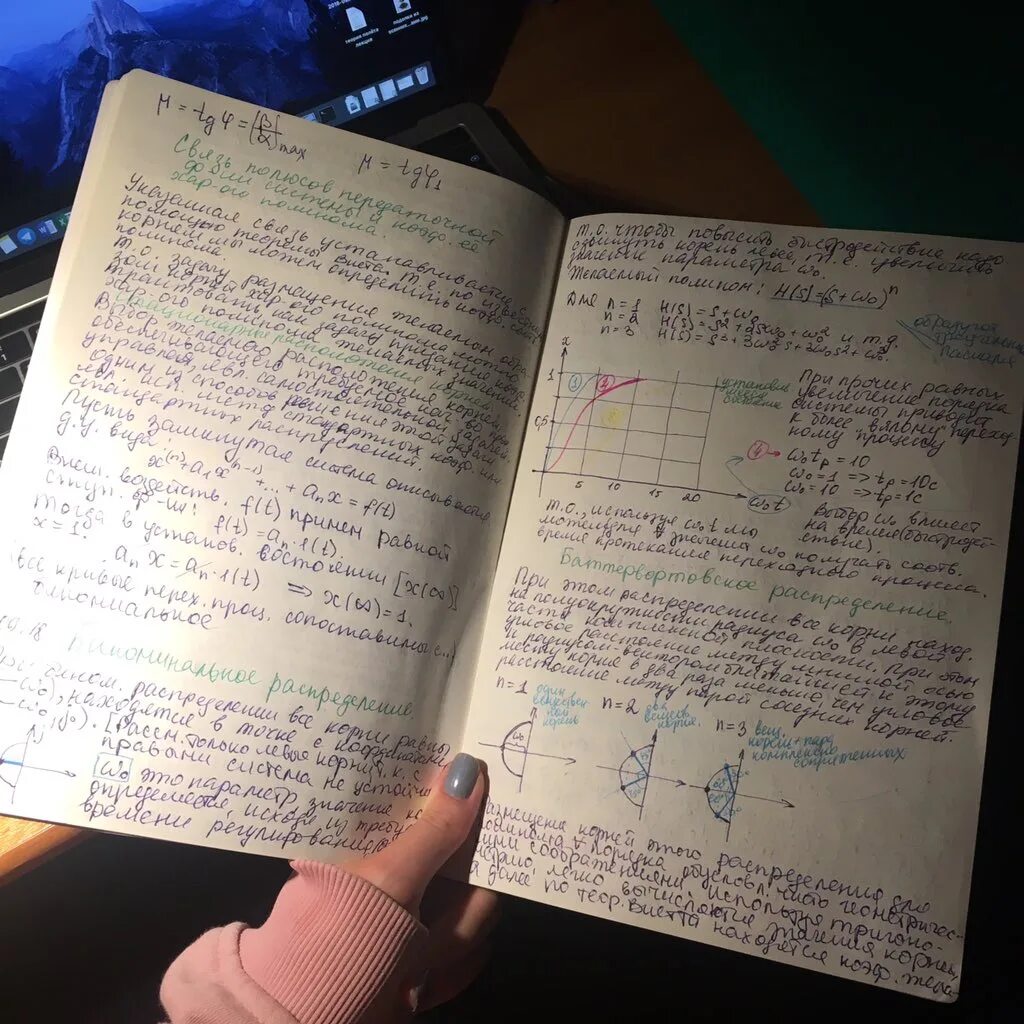 μ = tgφ = (β/α)max
μ = tgφ₁
Связь полюсов передаточной
ф-ции системы и коэф. её
хар-ого полинома.
Указанная связь устанавливается с
помощью теоремы Виета. Т.е. по известным
корням мы можем определить коэф.
полинома.
Т.О. задачу размещения желаемом
корней хар-ого полинома можно
трактовать, как задачу придания коэф.
хар-ого полинома желаемых значений.
Стандартные расположения корней.
Выбор желаемого расположения корней,
обеспечивающего требуемое кач-во
управлен. явл. самостоятельной задачей.
Одним из способов решение этой задачи
явл. исп. метод стандартных коэф. или
стандартных распределений.
Пусть замкнутая система описывается
д.у. вида:
x⁽ⁿ⁾ + a₁x⁽ⁿ⁻¹⁾ + ... + aₙx = f(t)
Внеш. воздейств. f(t) примем равной
ступ. ф-ии:
f(t) = aₙ·1(t).
Тогда в установ. состоянии [x(∞)]
x = 1.
aₙx = aₙ·1(t) ⇒ x(∞) = 1.
Все кривые перех. проц. сопоставимы
биномиальное
.10.18
Биноминальное распределение
При бином. распределении все корни равны
(-ω₀), находятся в точке с координатами
(-ω₀, j0). [Рассм. только левые корни, т.к. с
правами система не устойчи
ω₀ это параметр, значение ко
определяется, исходя из требуе
времени регулирования
Т.О. чтобы повысить быстродействие надо
сдвинуть корень левее, т.е. увеличить
значение параметра ω₀.
Желаемый полином: H(S)=(S+ω₀)ⁿ
Для n=1 H(S) = S+ω₀
n=2 H(S) = S²+2Sω₀+ω₀² и т.д.
n=3 H(S) = S³+3ω₀²S+3ω₀S²+ω₀³
образуют
треугольник
Паскаля
x
1
0,5
1
2
3
5 10 15 20
ω₀t
установив
системе
При прочих равных
увеличение порядка
системы приводит
к более вялому переход-
ному процессу
ω₀tp = 10
ω₀ = 1 => tp = 10c
ω₀ = 10 => tp = 1c
Выбор ω₀ влияет
на время (быстродей-
ствие).
Т.О., используя ω₀t мы
можем для ∀ значения ω₀ получать соотв.
время протекания переходного процесса.
Баттервортовское распределение.
При этом распределении все корни наход.
на полуокружности радиуса ω₀ в левой
части комплексной плоскости. При этом
угловое расстояние между мнимой осью
и радиусом-вектором ближайшего к этому
месту корня в два раза меньше, чем угловое
расстояние между парой соседних корней.
n=1
один
веществен
ный
корень
n=2
два
веществ.
корня.
n=3
вещ.
корень + пара
комплексно
сопряженных
ω₀
Размещение корней этого распределения для
полинома ∀ порядка обусловл. чисто геометричес-
кими соображениями. Используя тригоно-
метрию, легко вычисляются значения корней,
а далее по теор. Виетта находятся коэф. жела-